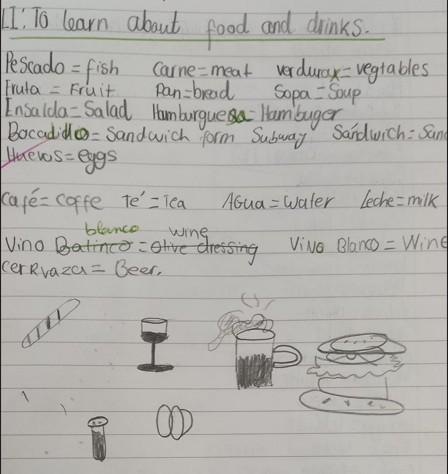 LI: To learn about food and drinks.
Pescado = fish Carne = meat verduras = vegtables
Fruta = Fruit Pan = bread Sopa = Soup
Ensalda = Salad Hamburguesa = Hambuger
Bocadillo = Sandwich form Subway Sándwich = San
Huevos = eggs
Café = Coffe Té = Tea Agua = Water Leche = milk
blanco wine
Vino Batinco = Olive dressing Vino Blanco = Wine
Cerrvaza = Beer.